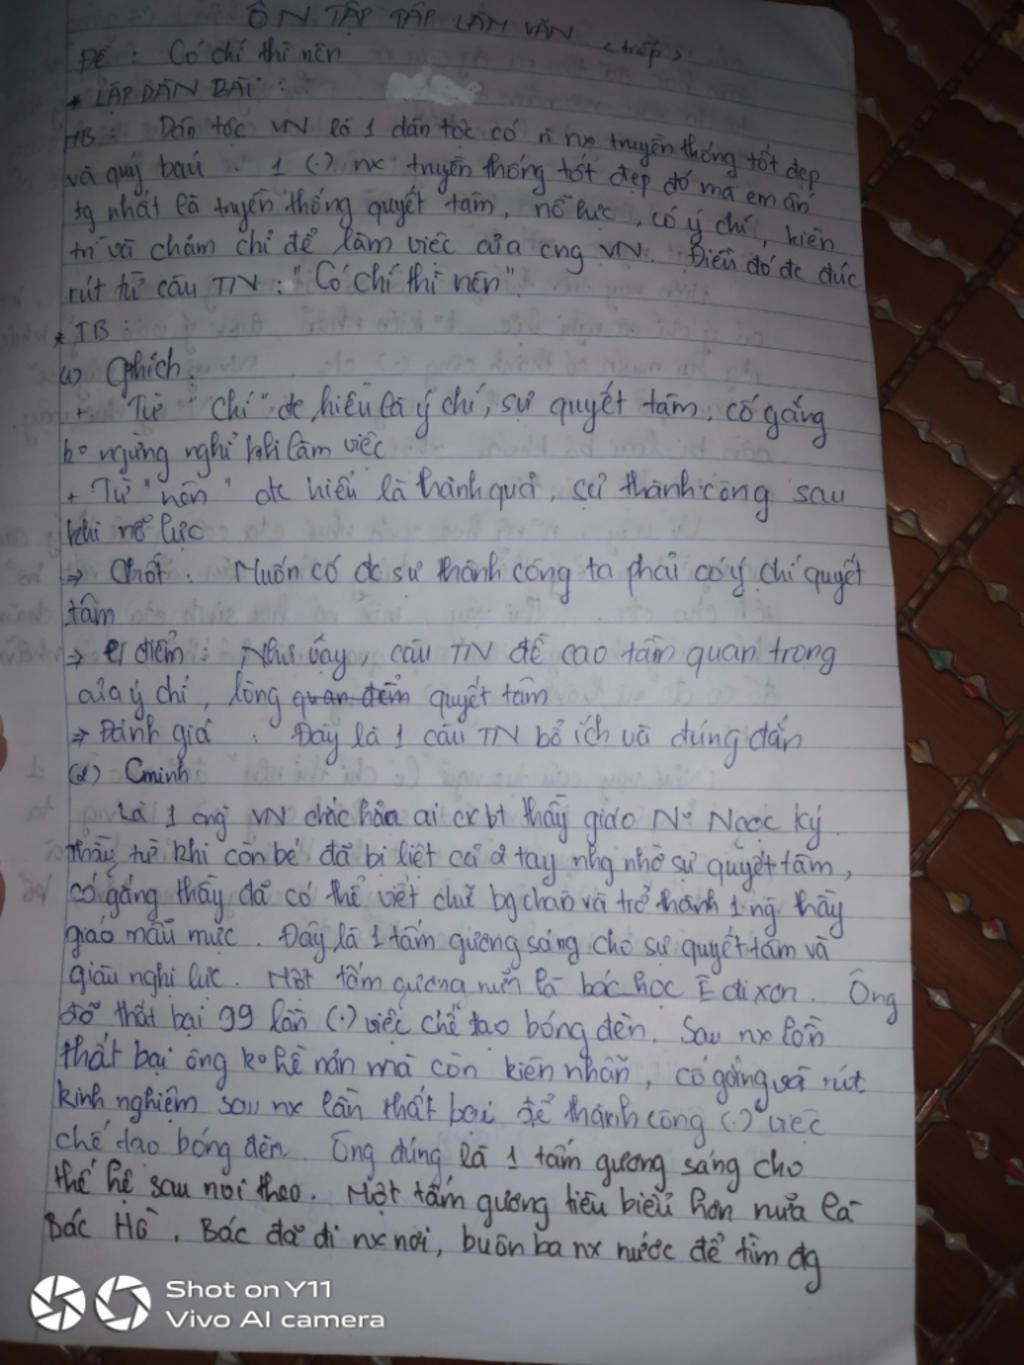 ÔN TẬP TẬP LÀM VĂN (tiếp)
Đề : Có chí thì nên
* LẬP DÀN BÀI :
MB : Dân tộc VN là 1 dân tộc có n nx truyền thống tốt đẹp
và quý báu . 1 (.) nx truyền thống tốt đẹp đó mà em ấn
tg nhất là truyền thống quyết tâm, nỗ lực, có ý chí, kiên
trì và chăm chỉ để làm việc của cng VN. Điều đó đc đúc
rút từ câu TN : "Có chí thì nên".
* TB :
(1) Gthích :
+ Từ "chí" đc hiểu là ý chí, sự quyết tâm, cố gắng
ko ngừng nghỉ khi làm việc
+ Từ "nên" đc hiểu là thành quả, sự thành công sau
khi nỗ lực
⇒ Chốt : Muốn có đc sự thành công ta phải có ý chí quyết
tâm
⇒ điểm : Như vậy, câu TN đề cao tầm quan trọng
của ý chí, lòng quan điểm quyết tâm
⇒ Đánh giá : Đây là 1 câu TN bổ ích và đúng đắn
(2) Cminh
Là 1 cng VN chắc hẳn ai cx bt thầy giáo No Ngọc Ký.
Thầy từ khi còn bé đã bị liệt cả 2 tay nhg nhờ sự quyết tâm,
cố gắng thầy đã có thể viết chữ bg chân và trở thành 1 ng thầy
giáo mẫu mực. Đây là 1 tấm gương sáng cho sự quyết tâm và
giàu nghị lực. Một tấm gương nữa là bác học Ê đi xơn. Ông
đã thất bại 99 lần (.) việc chế tạo bóng đèn. Sau nx lần
thất bại ông ko hề nản mà còn kiên nhẫn, cố gắng và rút
kinh nghiệm sau nx lần thất bại để thành công (.) việc
chế tạo bóng đèn. Ông đúng là 1 tấm gương sáng cho
thế hệ sau noi theo. Một tấm gương tiêu biểu hơn nữa là
Bác Hồ. Bác đã đi nx nơi, buôn ba nx nước để tìm đg
Shot on Y11
Vivo AI camera